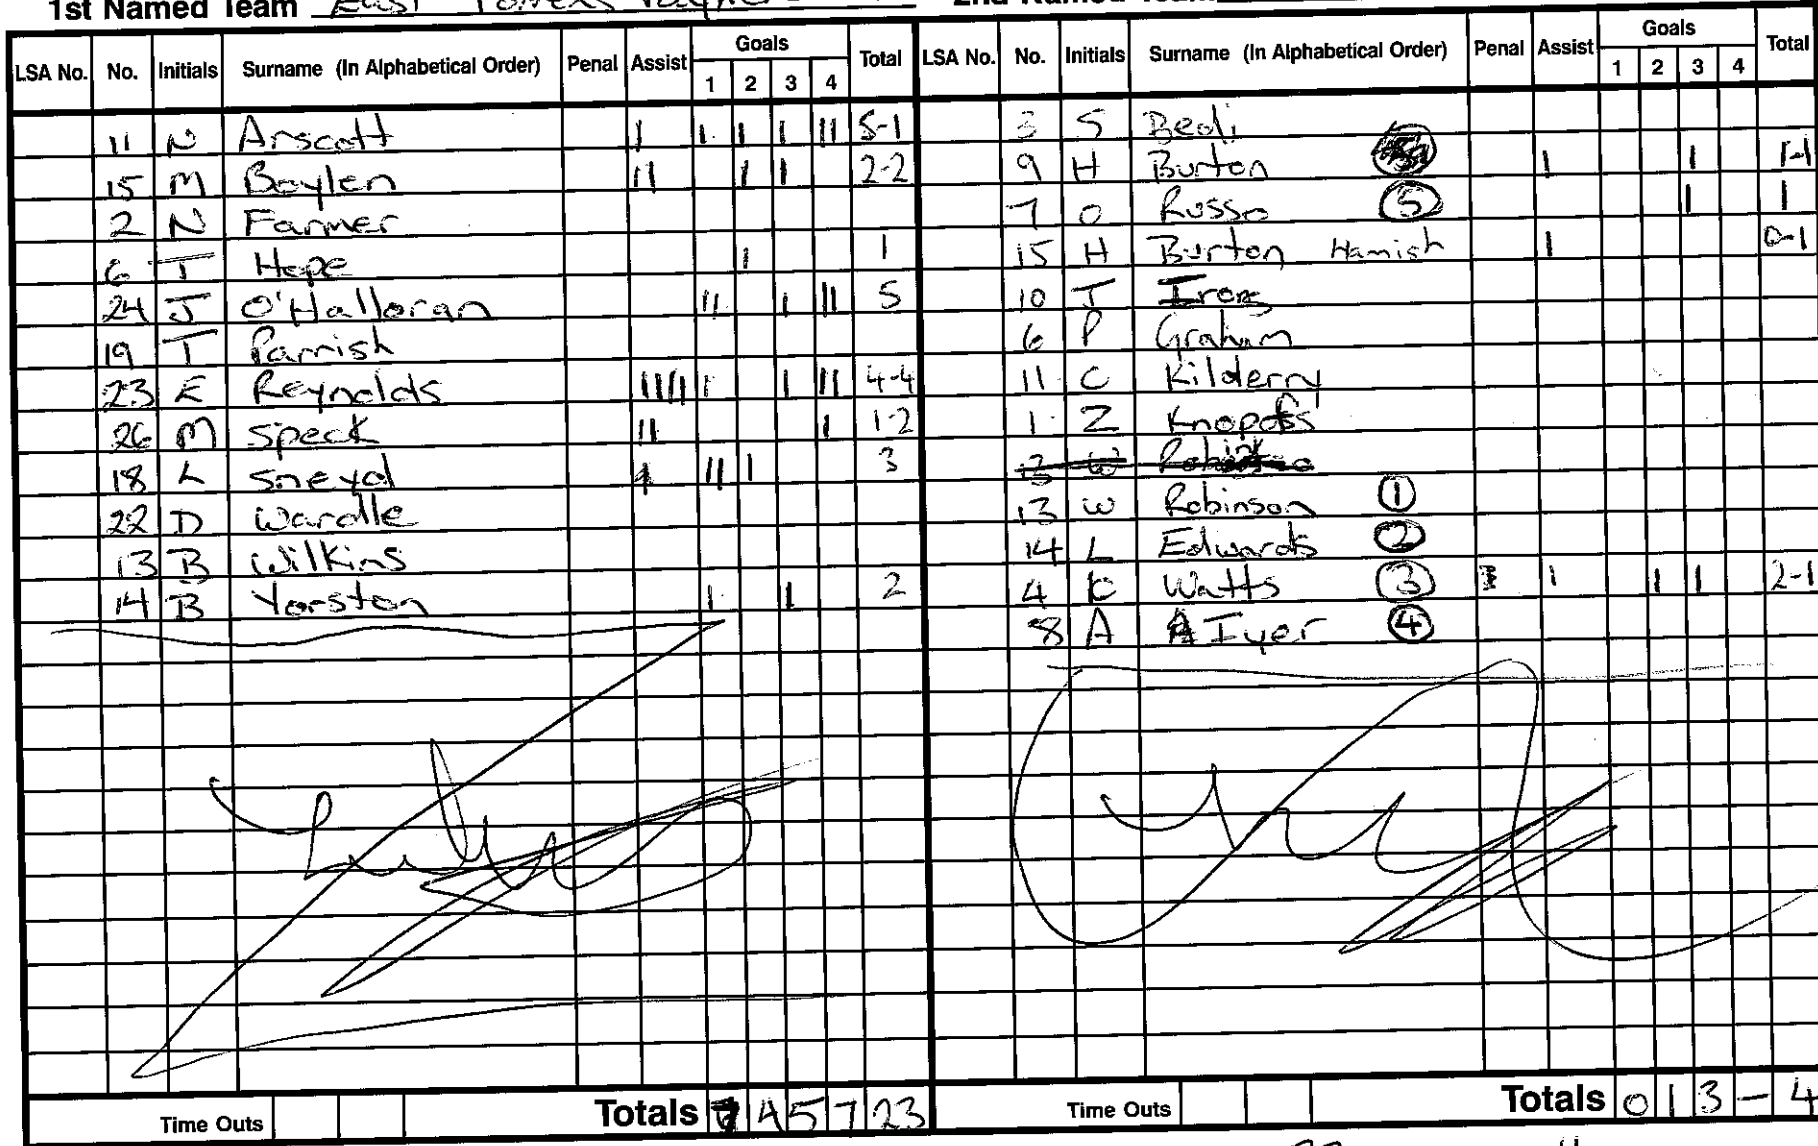 1st Named Team East Torrens Payneham 2nd Named Team
LSA No. No. Initials Surname (In Alphabetical Order) Penal Assist Goals 1 2 3 4 Total
11 N Arscott | | | | || 5-1
15 M Boylen || | | 2-2
2 N Farmer
6 T Hope | 1
24 J O'Halloran || | || 5
19 T Parrish
23 E Reynolds |||| | | || 4-4
26 M Speck || | 1-2
18 L Sneyd | || | 3
22 D Wardle
13 B Wilkins
14 B Yorston | | 2
Time Outs Totals 7 4 5 7 23
LSA No. No. Initials Surname (In Alphabetical Order) Penal Assist Goals 1 2 3 4 Total
3 S Bedi
9 H Burton | | 1-1
7 O Russo 5 | 1
15 H Burton Hamish | 0-1
10 J Irons
6 P Graham
11 C Kilderry
1 Z Knopoff
13 W Robinson 1
14 L Edwards 2
4 Watts 3 | | | 2-1
8 A Iyer 4
Time Outs Totals 0 1 3 - 4